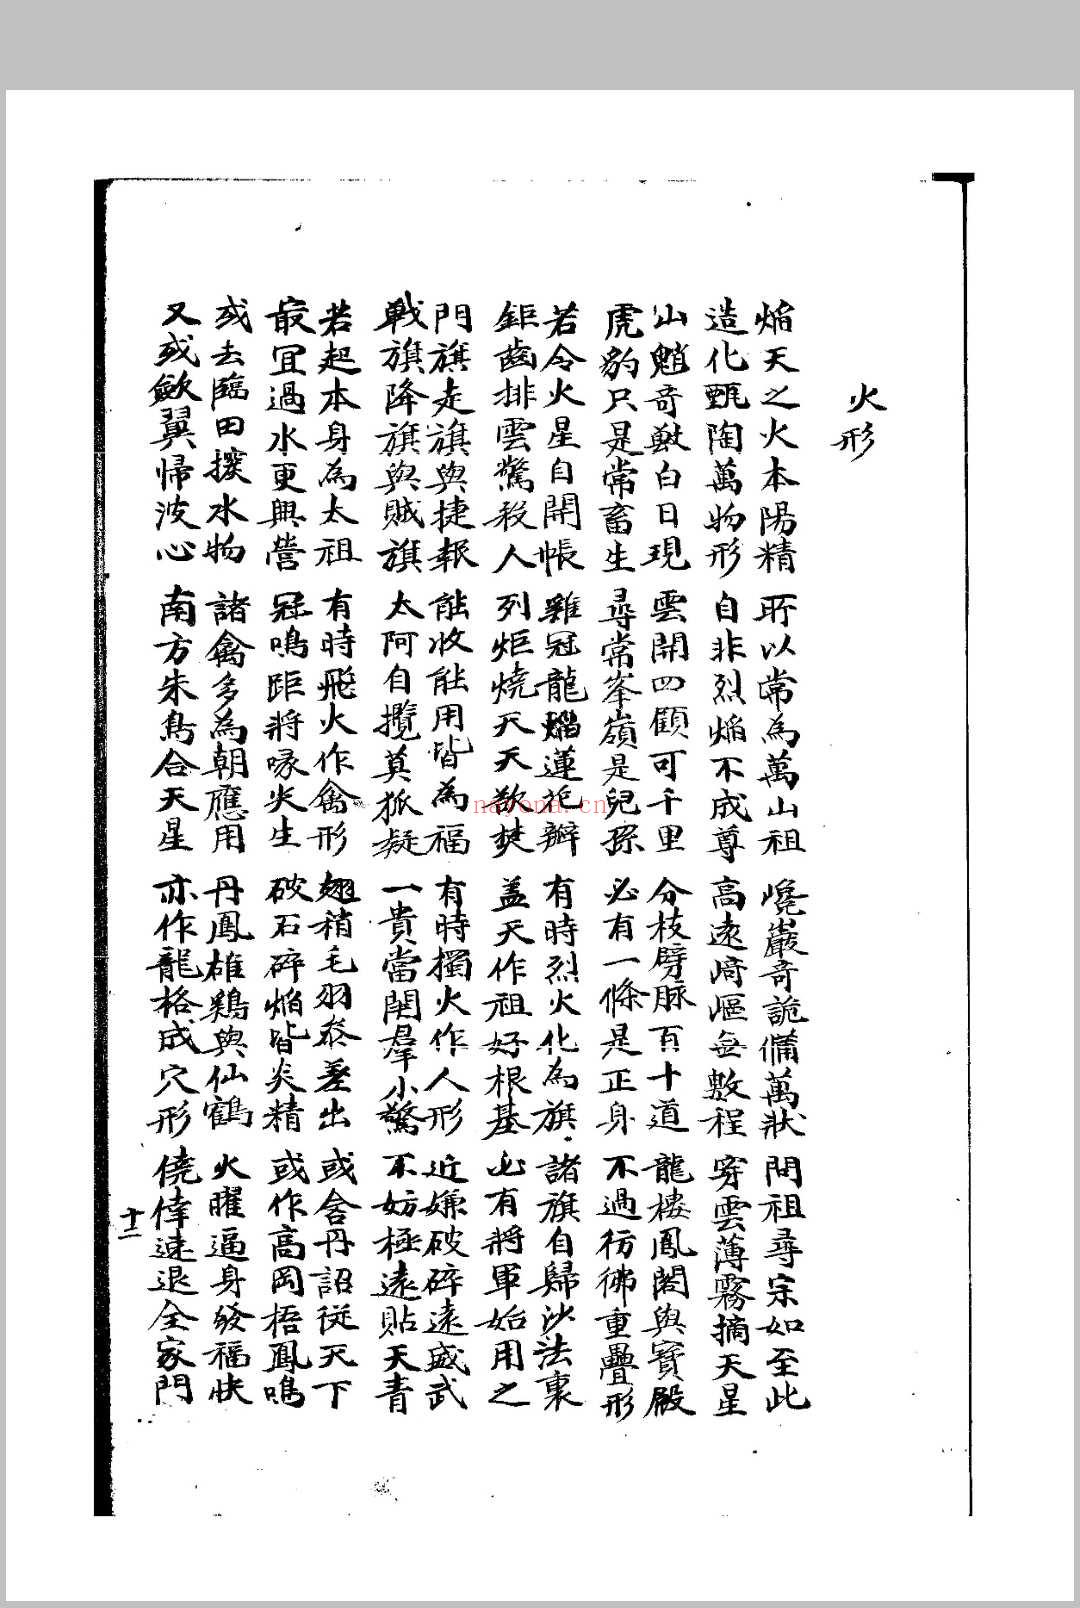 火形
焰天之火本陽精 所以常為萬山祖 巉巖奇詭備萬狀 問祖尋宗如至此
造化甄陶萬物形 自非烈焰不成尊 高遠崎嶇無數程 穿雲薄霧摘天星
山魈奇獸白日現 雲開四顧可千里 分枝劈脉百十道 龍樓鳳閣與寶殿
虎豹只是常畜生 尋常峯嶺是兒孫 必有一條是正身 不過彷彿重疊形
若令火星自開帳 雞冠龍焰蓮花瓣 有時烈火化為旗 諸旗自歸沙法裏
鉅齒排雲驚殺人 列炬燒天天欲焚 盖天作祖好根基 必有將軍始用之
門旗走旗與捷報 能收能用皆為福 有時獨火作人形 近嫌破碎遠威武
戰旗降旗與賊旗 太阿自攬莫狐疑 一貴當關羣小驚 不妨極遠貼天青
若起本身為太祖 有時飛火作禽形 翅稍毛羽參差出 或含丹詔從天下
最宜過水更興營 冠鳴距將喙尖生 破石碎焰皆炎精 或作高岡梧鳳鳴
或去臨田撥水物 諸禽多為朝應用 丹鳳雄鷄與仙鶴 火曜逼身發福快
又或歛翼帰波心 南方朱鳥合天星 亦作龍格成穴形 僥倖速退全家門
十二
nayona.cn